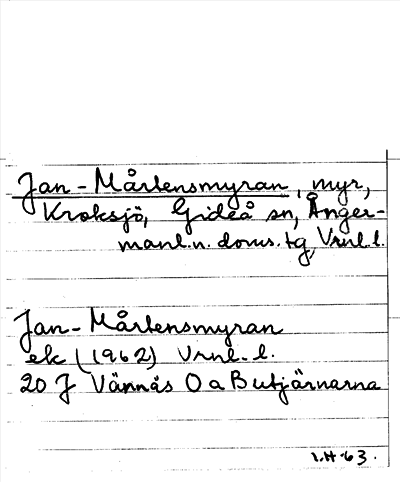 Jan-Mårtensmyran, myr,
Kroksjö, Gideå sn, Ånger-
manl.n. doms. tg, Vrnl.l.
Jan-Mårtensmyran
ek (1962) Vrnl.l.
20 J Vännäs O a B utjärnarna
I.H-63.